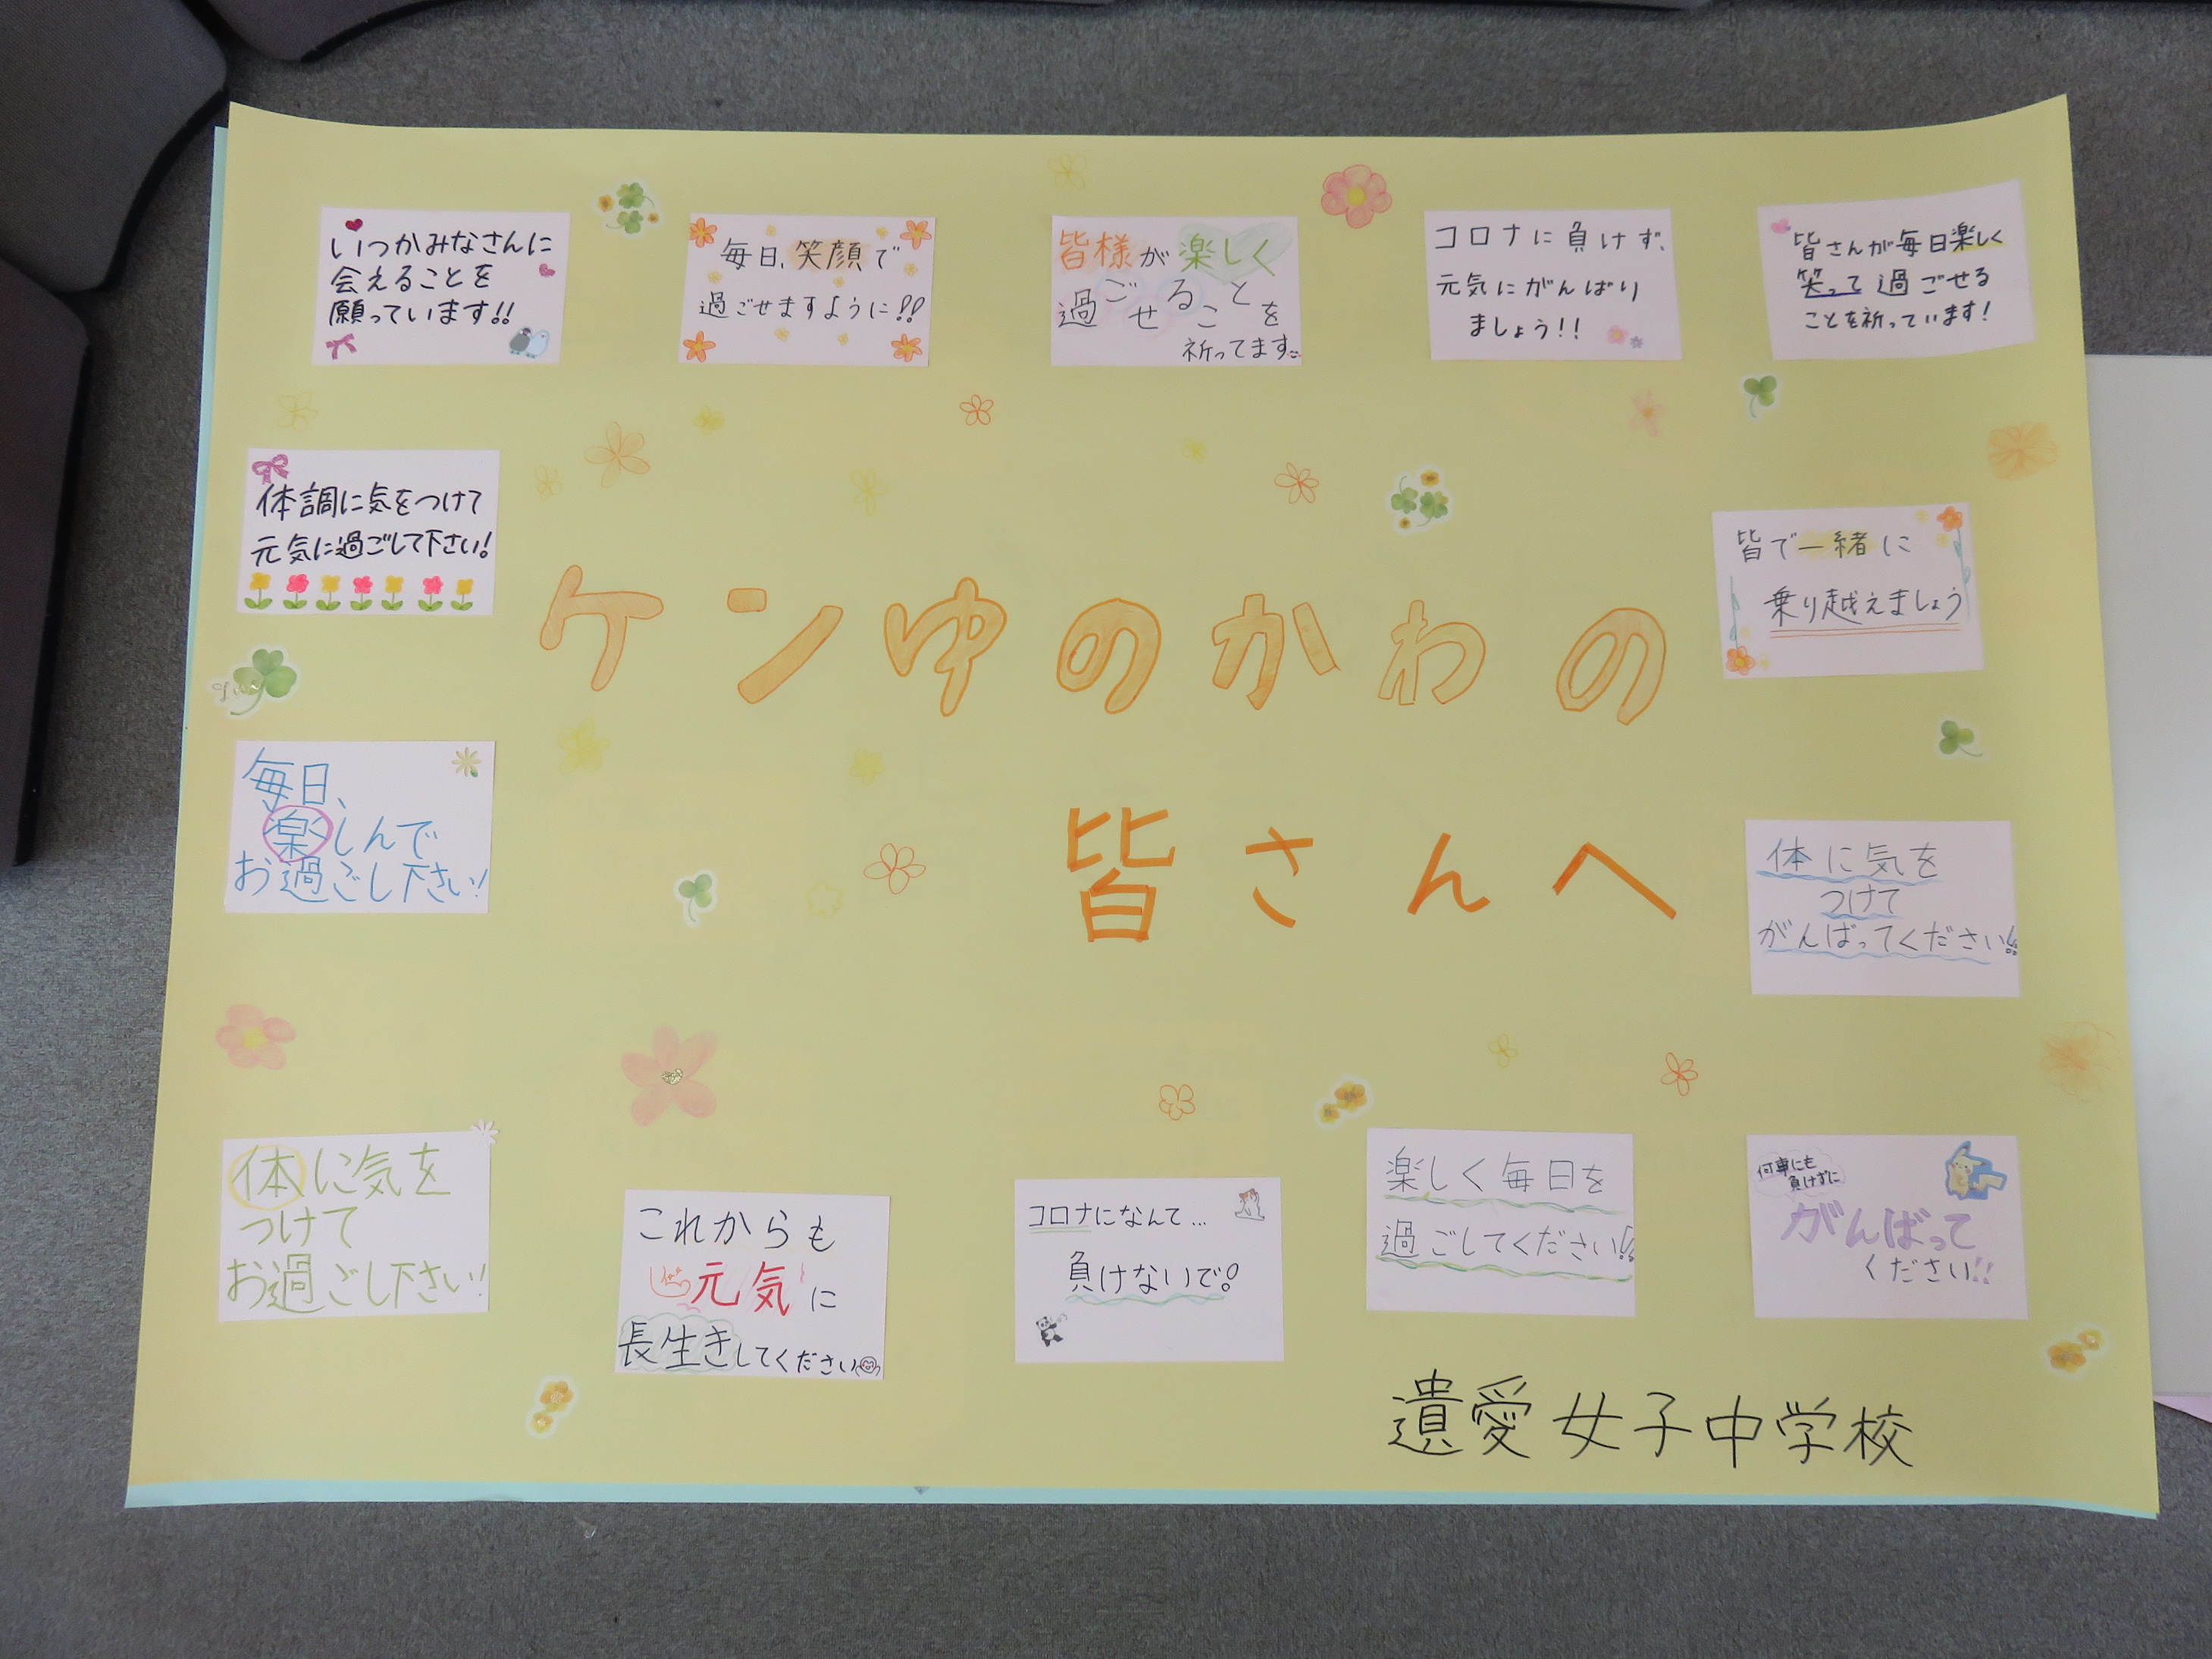 いつかみなさんに
会えることを
願っています!!
毎日、笑顔で
過ごせますように!!
皆様が楽しく
過ごせることを
祈ってます
コロナに負けず、
元気にがんばり
ましょう!!
皆さんが毎日楽しく
笑って過ごせる
ことを祈っています!
体調に気をつけて
元気に過ごして下さい!
皆で一緒に
乗り越えましょう
ケンゆのかわの
皆さんへ
毎日、
楽しんで
お過ごし下さい!
体に気を
つけて
がんばってください!!
体に気を
つけて
お過ごし下さい!
これからも
元気に
長生きしてください
コロナになんて...
負けないで!
楽しく毎日を
過ごしてください!!
何事にも
負けずに
がんばって
ください!!
遺愛女子中学校